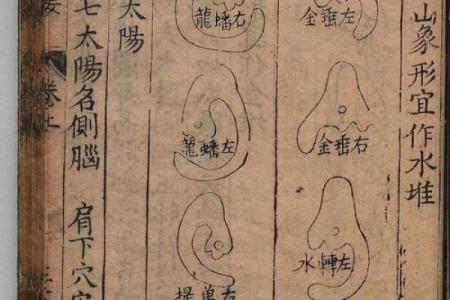 山象形宜作水堆
左垂金
右垂金
左轉水
右蟠龍
左蟠龍
太陽
七太陽名側腦 肩下穴
卷上